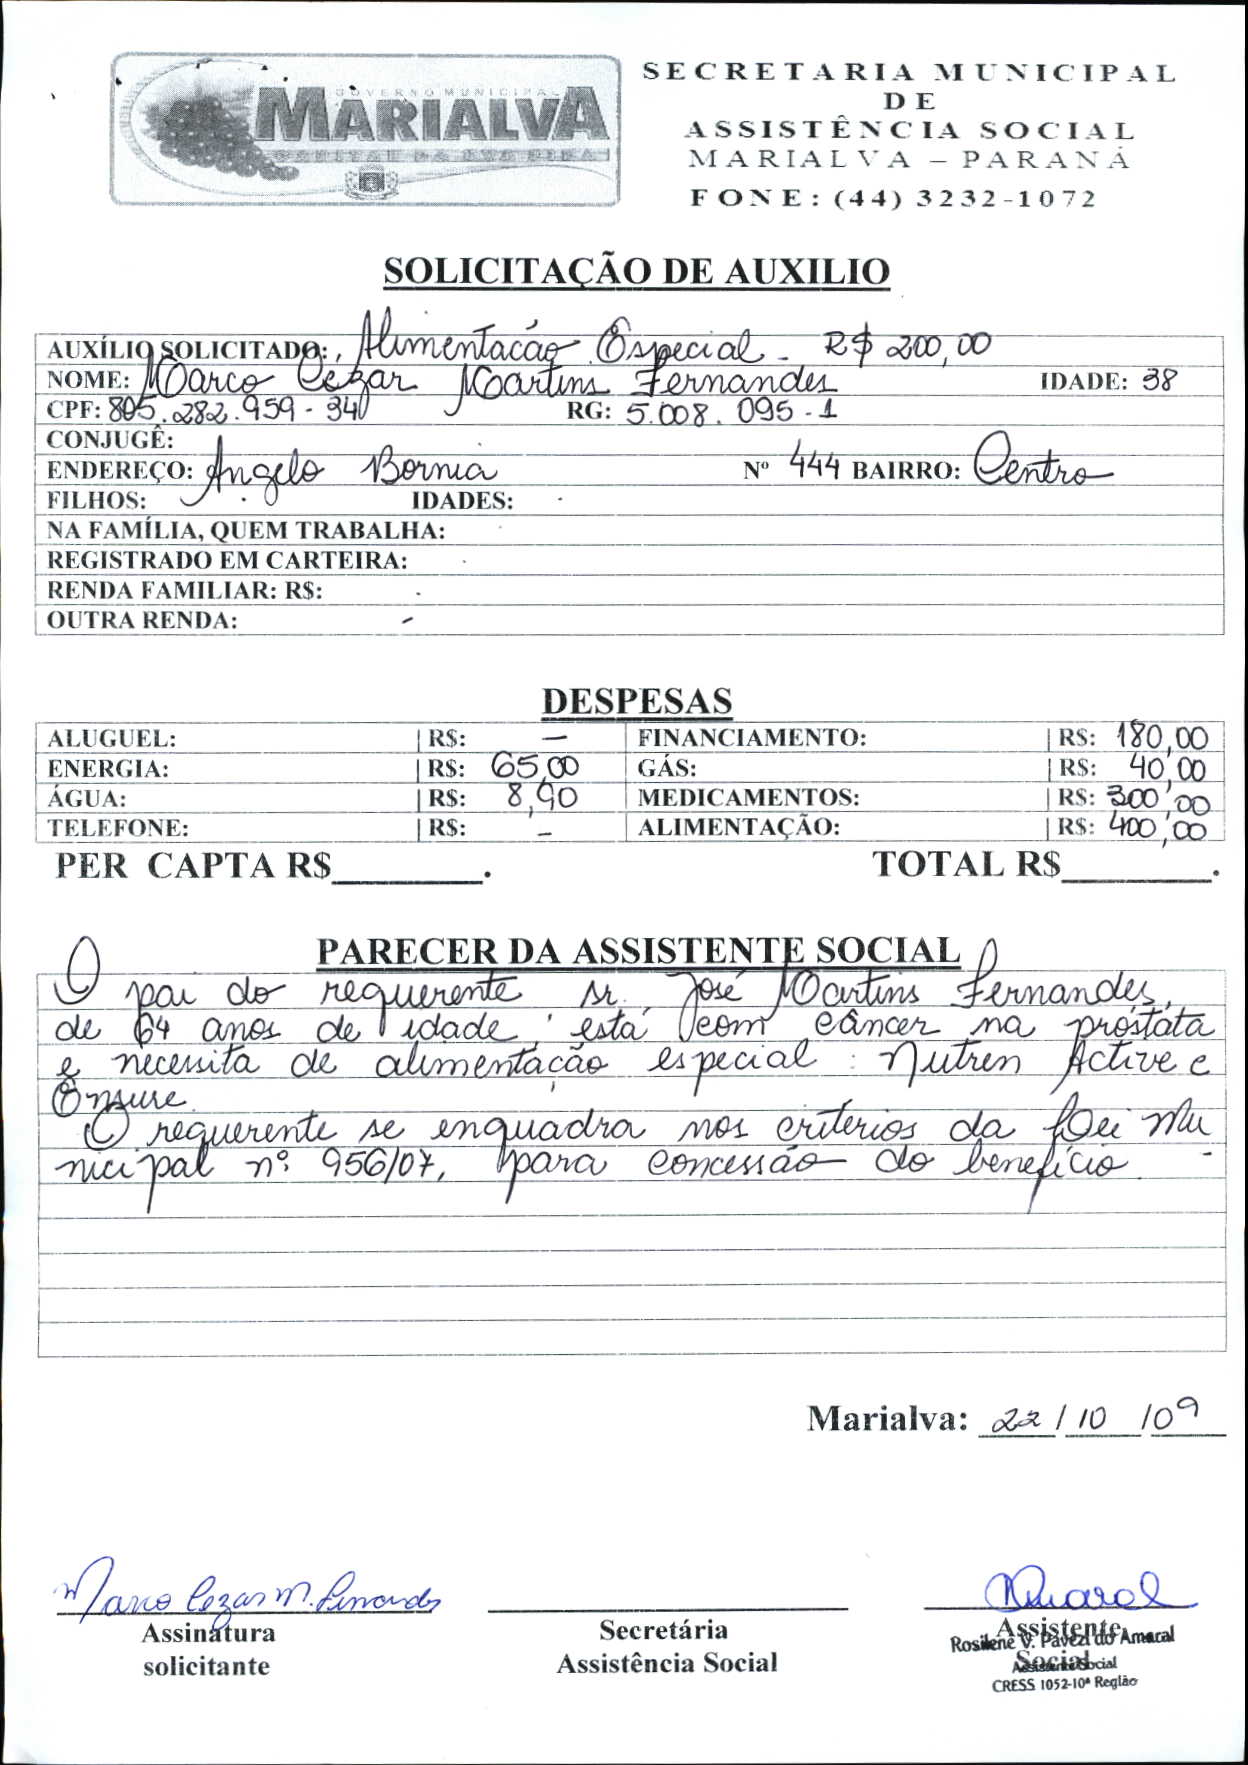 GOVERNO MUNICIPAL
MARIALVA
CAPITAL DA UVA FINA
SECRETARIA MUNICIPAL
DE
ASSISTÊNCIA SOCIAL
MARIALVA – PARANÁ
FONE: (44) 3232-1072
SOLICITAÇÃO DE AUXILIO
AUXÍLIO SOLICITADO: Alimentacão Especial - R$ 200,00
NOME: Marco Cezar Martins Fernandes IDADE: 38
CPF: 805.282.959-34 RG: 5.008.095-1
CONJUGÊ:
ENDEREÇO: Angelo Bornia Nº 444 BAIRRO: Centro
FILHOS: IDADES:
NA FAMÍLIA, QUEM TRABALHA:
REGISTRADO EM CARTEIRA:
RENDA FAMILIAR: R$:
OUTRA RENDA: -
DESPESAS
ALUGUEL: R$: — FINANCIAMENTO: R$: 180,00
ENERGIA: R$: 65,00 GÁS: R$: 40,00
ÁGUA: R$: 8,90 MEDICAMENTOS: R$: 300,00
TELEFONE: R$: – ALIMENTAÇÃO: R$: 400,00
PER CAPTA R$________. TOTAL R$________.
PARECER DA ASSISTENTE SOCIAL
O pai do requerente sr. José Martins Fernandes,
de 64 anos de idade, está com câncer na próstata
e necessita de alimentação especial: Nutren Active e
Ensure.
O requerente se enquadra nos critérios da Lei Mu
nicipal nº 956/07, para concessão do benefício. -
Marialva: 22/10/09
Marco Cezar M. Fernandes
Assinatura
solicitante
Secretária
Assistência Social
RAmaral
Assistente
Social
Rosilene V. Pavezi do Amaral
Assistente Social
CRESS 1052-10ª Região